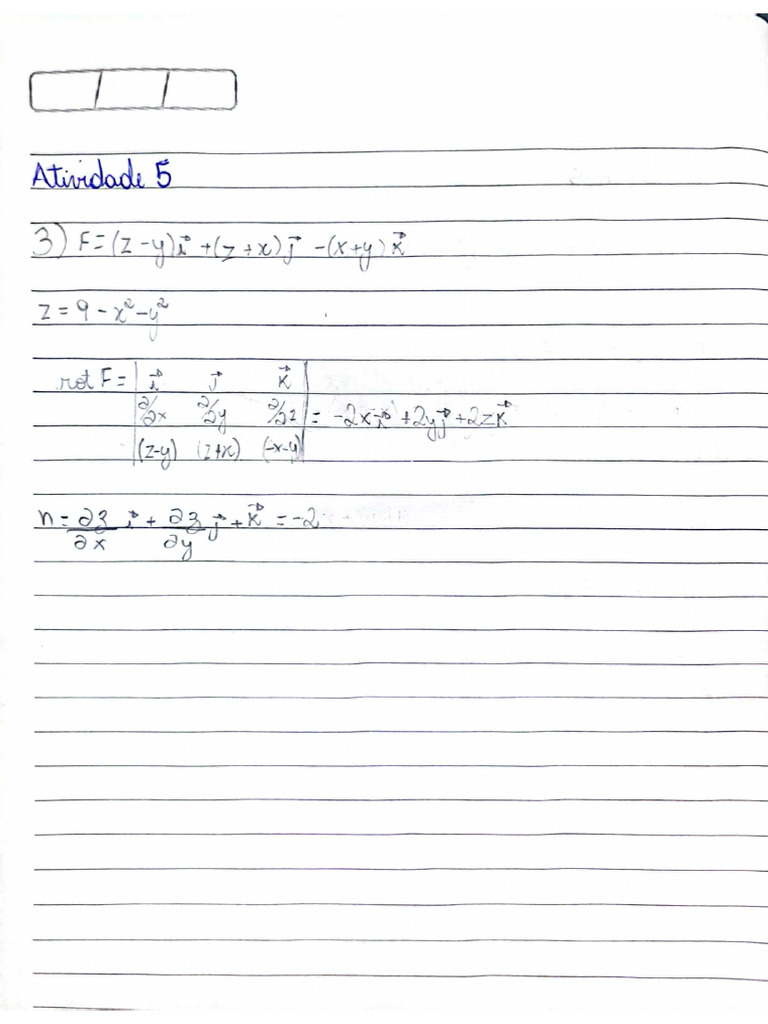 Atividade 5
3) F=(z-y)i⃗ +(z+x)j⃗ -(x+y)k⃗
z = 9 - x² - y²
rot F = | i⃗ j⃗ k⃗ |
| ∂/∂x ∂/∂y ∂/∂z | = -2xi⃗ +2yj⃗ +2zk⃗
| (z-y) (z+x) (-x-y) |
n = ∂z/∂x i⃗ + ∂z/∂y j⃗ + k⃗ = -2